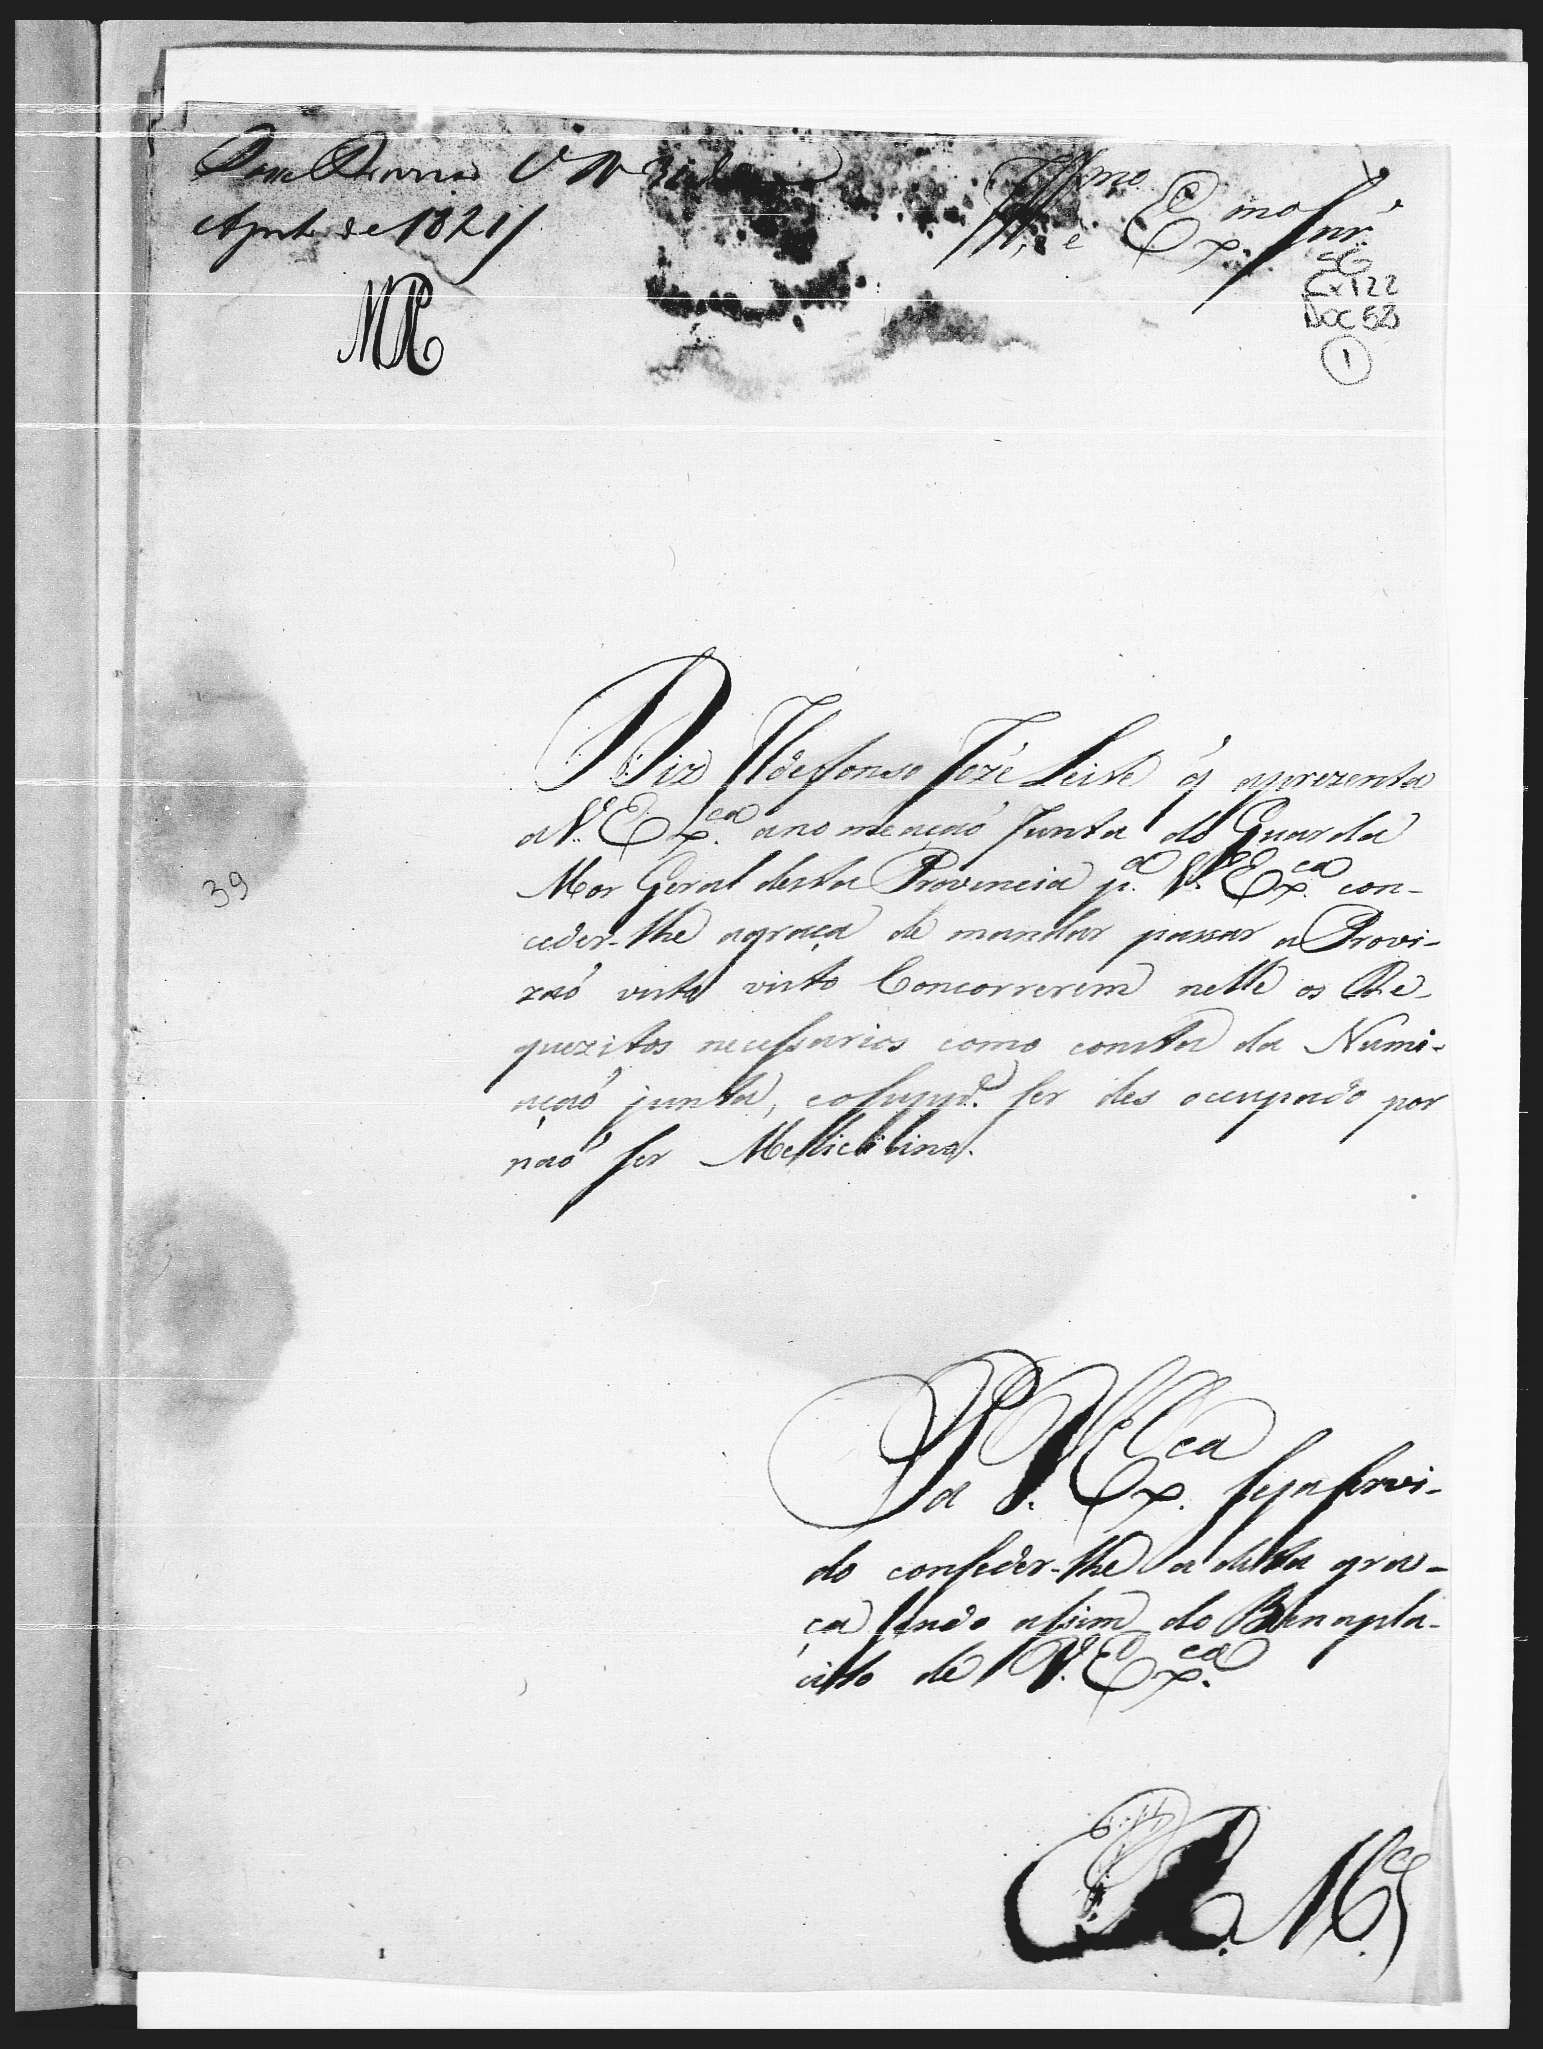 Agosto de 1821
Illmo. e Exmo. Snr.
SG
Cx 122
DOC 58
1
39
Diz Ildefonso Jozé Leite q̃ aprezenta
a V. Exca. anomeaçaó Junta do Guarda
Mor Geral desta Provincia pa. V. Exca. con-
ceder-lhe agraça de mandar passar a Provi-
zaó visto Concorrerem nelle os Re-
quezitos necessarios como consta da Numi-
açaó junta, ser des ocupado por
naó ser
Pa. V. Exca. seja servi-
do conseder-lhe a dita gra-
ça sendo assim do Benapla-
cito de V. Exca.
E. R. Mce.